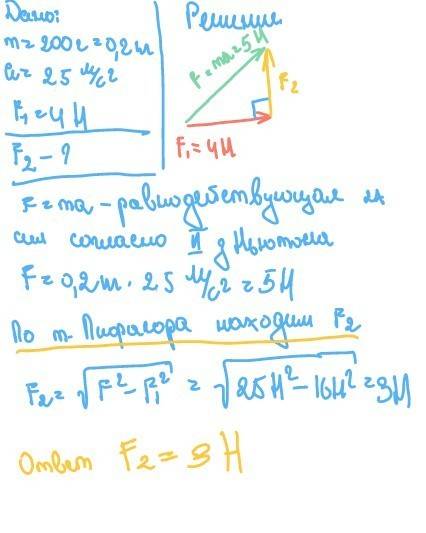 Дано:
m = 200 г = 0,2 кг
a = 25 м/с²
F₁ = 4 Н
F₂ - ?
Решение
F = ma = 5 Н
F₂
F₁ = 4 Н
F = ma - равнодействующая
сил согласно II з Ньютона
F = 0,2 кг · 25 м/с² = 5 Н
По т. Пифагора находим F₂
F₂ = √F² - F₁² = √25 Н² - 16 Н² = 3 Н
Ответ F₂ = 3 Н